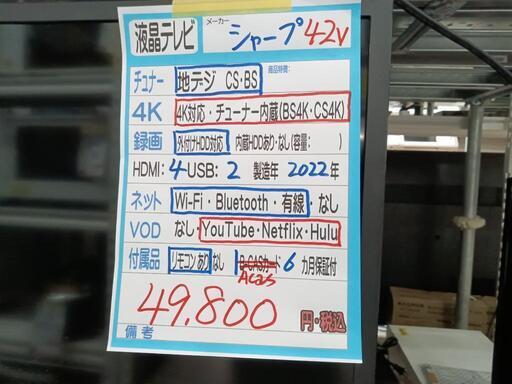 液晶テレビ メーカー シャープ 42V
チュナー 地テジ CS・BS 商品特徴:
4K 4K対応・チューナー内蔵(BS4K・CS4K)
録画 外付けHDD対応 内蔵HDDあり・なし(容量: )
HDMI: 4 USB: 2 製造年 2022年
ネット Wi-Fi・Bluetooth・有線・なし
VOD なし・YouTube・Netflix・Hulu
付属品 リモコンあり なし B-CASカード 6カ月保証付
Acas
49,800 円・税込
備考